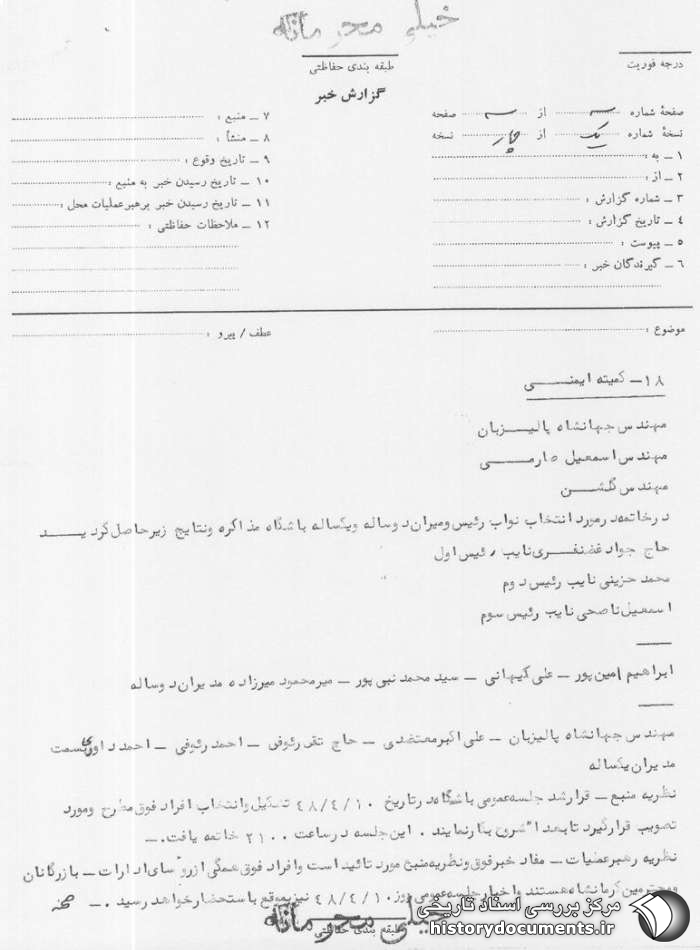 خیلی محرمانه
طبقه بندی حفاظتی
درجه فوریت
گزارش خبر
صفحهٔ شماره سه از سه صفحه
نسخهٔ شماره یک از چار نسخه
۱ ــ به :
۲ ــ از :
۳ ــ شماره گزارش :
۴ ــ تاریخ گزارش :
۵ ــ پیوست :
۶ ــ گیرندگان خبر :
۷ ــ منبع :
۸ ــ منشأ :
۹ ــ تاریخ وقوع :
۱۰ ــ تاریخ رسیدن خبر به منبع :
۱۱ ــ تاریخ رسیدن خبر برهبر عملیات محل :
۱۲ ــ ملاحظات حفاظتی :
موضوع :
عطف / پیرو :
۱۸ــ کمیته ایمنـــی
مهندس جهانشاه پالیـــزبان
مهندس اسمعیل صارمـــی
مهندس گلشـــن
درخاتمه درمورد انتخاب نواب رئیس ومیران دوساله ویکساله باشگاه مذاکره ونتایج زیرحاصل گردیـــد
حاج جواد غضنفـــری نایب رئیس اول
محمد حزینی نایب رئیس دوم
اسمعیل ناصحی نایب رئیس سوم
ابراهیم امین پور ــ علی کیهانی ــ سید محمد نبی پور ــ میرمحمود میرزاده مدیران دوساله
مهندس جهانشاه پالیزبان ــ علی اکبر معتضدی ــ حاج تقی رئوفی ــ احمد رئوفی ــ احمد داوری بسمت
مدیران یکساله
نظریه منبع ــ قرارشد جلسه عمومی باشگاه درتاریخ ۴۸/۴/۱۰ تشکیل وانتخاب افراد فوق مطرح ومورد
تصویب قرارگیرد تابعدا" شروع بکارنمایند . این جلسه درساعت ۲۱۰۰ خاتمه یافت.ــ
نظریه رهبرعملیات ــ مفاد خبرفوق ونظریه منبع مورد تائیداست وافراد فوق همگی ازروسای ادارات ــ بازرگانان
ومحترمین کرمانشاه هستند واخبار جلسه عمومی روز ۴۸/۴/۱۰ نیزبموقع باستحضارخواهد رسید .ــ
خیلی محرمانه
طبقه بندی حفاظتی
مرکز بررسی اسناد تاریخی
historydocuments.ir